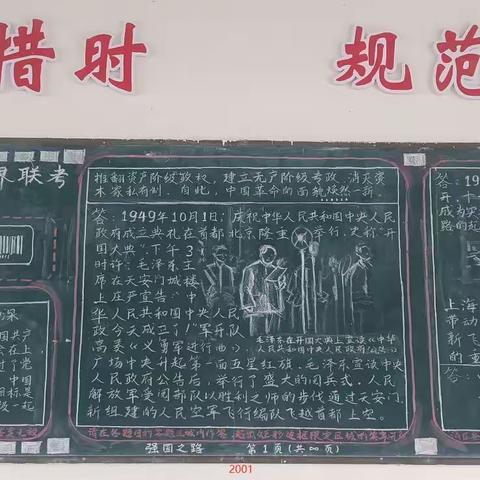 惜时
规范
界联考
推翻资产阶级政权，建立无产阶级专政，消灭资
本家私有制。自此，中国革命的面貌焕然一新。
答：1949年10月1日：庆祝中华人民共和国中央人民
政府成立典礼在首都北京隆重举行，史称"开
国大典"。下午3
时许，毛泽东主
席在天安门城楼
上庄严宣告："中
华人民共和国中央人民
政府今天成立了！"军乐队
高奏《义勇军进行曲》，
毛泽东在开国大典上宣读《中华
人民共和国中央人民政府公告》
广场中央升起第一面五星红旗。毛泽东宣读中央
人民政府公告后，举行了盛大的阅兵式。人民
解放军受阅部队以胜利之师的步伐通过天安门，
新组建的人民空军飞行编队飞越首都上空。
请在各题目的答题区域内作答，超出矩形边框限定区域的答案无效
强国之路 第1页(共∞页)
国共产
会在上
过了党
中国
目标是
政一起
答：19
开，十
成为实
路的起
上海
带动
新飞
的重
答：
2001